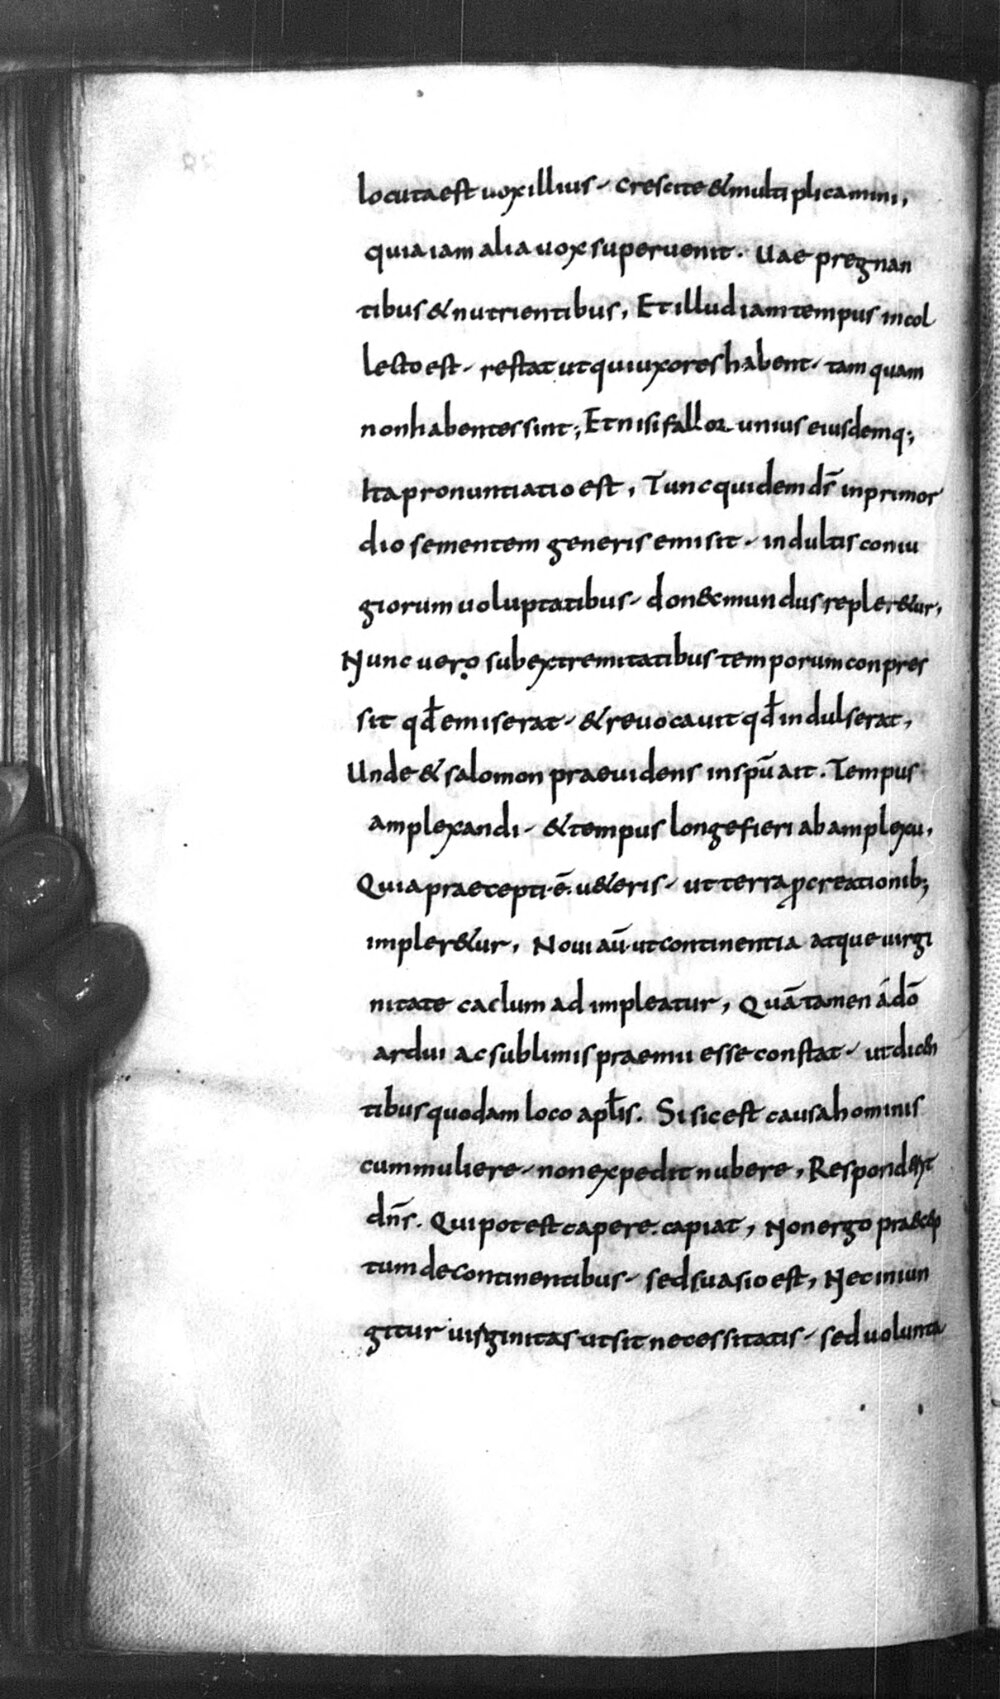 locuta est uox illius, crescite & multiplicamini,
quia iam alia uox superuenit. Uae pregnan
tibus & nutrientibus, Et illud iam tempus in col
lecto est, restat ut qui uxores habent, tam quam
non habentes sint; Et nisi fallor unius eiusdemq;
Ita pronuntiatio est, Tunc quidem d̄s in primor
dio sementem generis emisit, indultis coniu
giorum uoluptatibus, donec mundus repler&ur,
Nunc uero sub extremitatibus temporum conpres
sit qd̄ emiserat, & reuocauit qd̄ indulserat,
Unde & salomon praeuidens in spū ait. Tempus
amplexandi, & tempus longe fieri ab amplexu,
Quia praecepti ē. u&eris, ut terra ꝓcreationib;
impler&ur, Noui aū ut continentia atque uirgi
nitate caelum ad impleatur, Quā tamen ádō
ardui ac sublimis praemii esse constat, ut dicen
tibus quodam loco apl̄is. Si sic est causa hominis
cum muliere, non expedit nubere, Respondeat
dn̄s. Qui potest capere. capiat, Non ergo praecep
tum de continentibus, sed suasio est, Nec iniun
gitur uirginitas ut sit necessitatis, sed uolunta